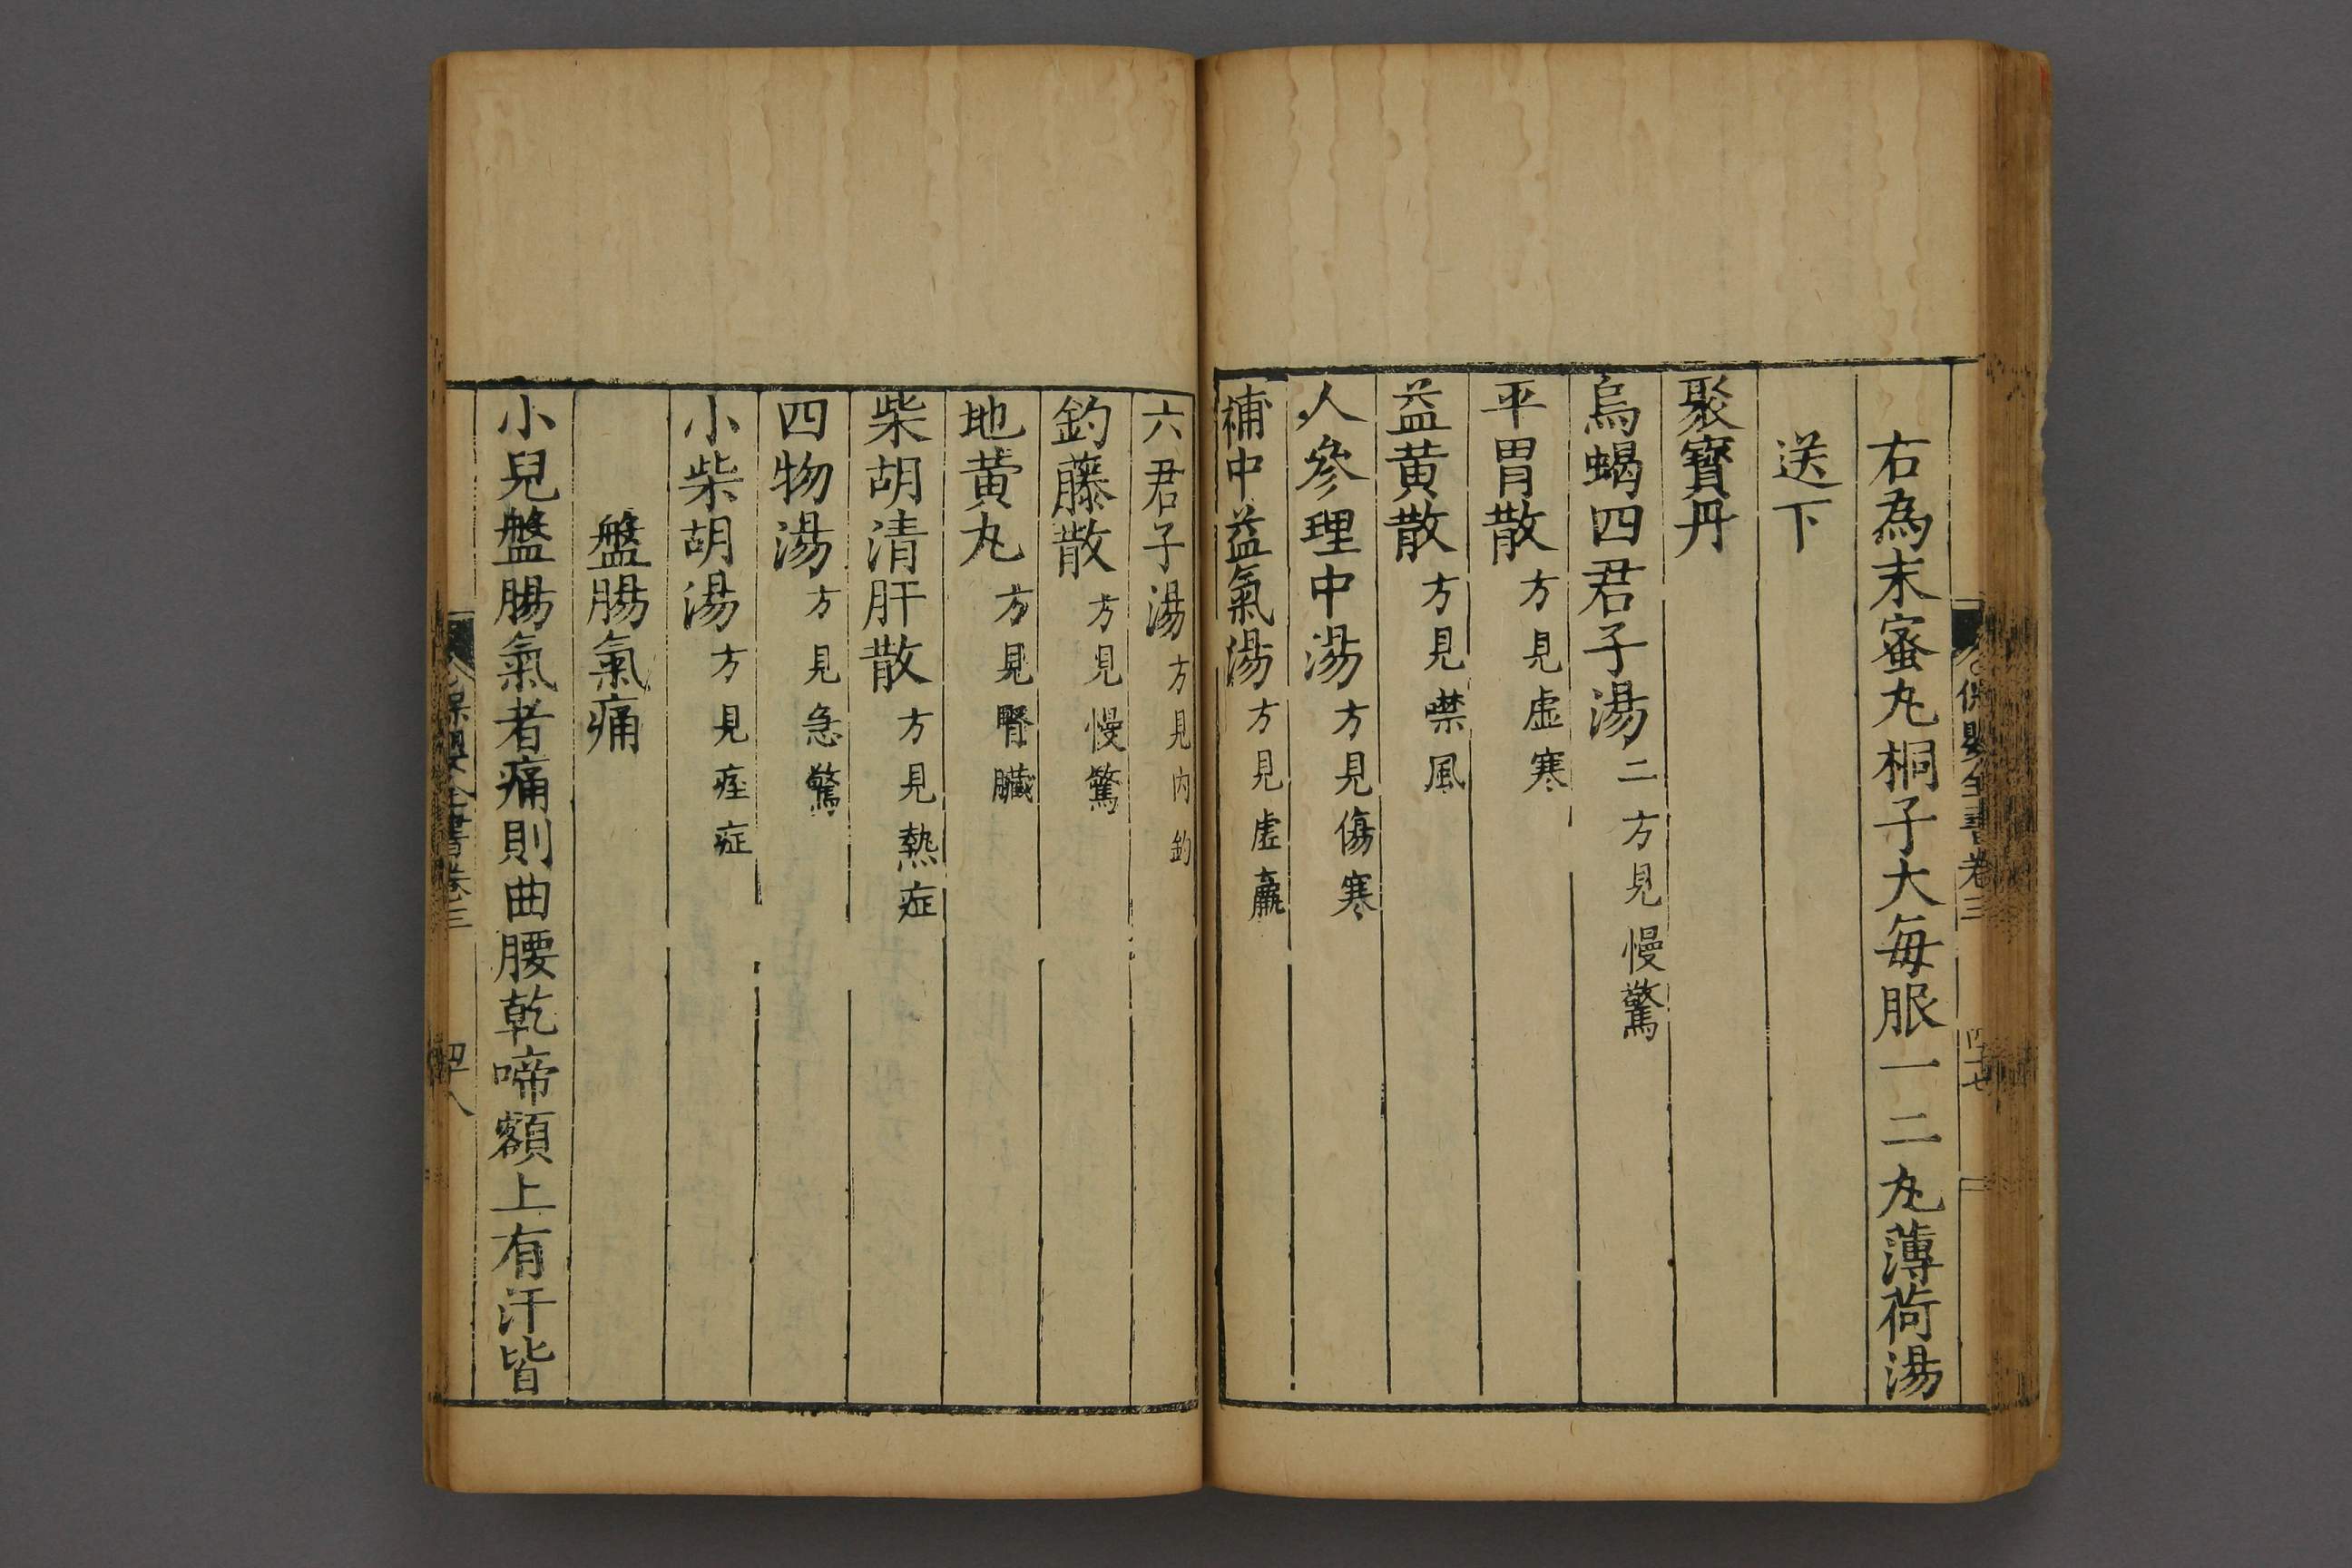 右為末蜜丸桐子大每服一二丸薄荷湯
送下
聚寳丹
烏蝎四君子湯二方見慢驚
平胃散方見虛寒
益黃散方見噤風
人參理中湯方見傷寒
補中益氣湯方見虛羸
六君子湯方見內釣
釣藤散方見慢驚
地黃丸方見腎臟
柴胡清肝散方見熱症
四物湯方見急驚
小柴胡湯方見痓症
盤腸氣痛
小兒盤腸氣者痛則曲腰乾啼額上有汗皆